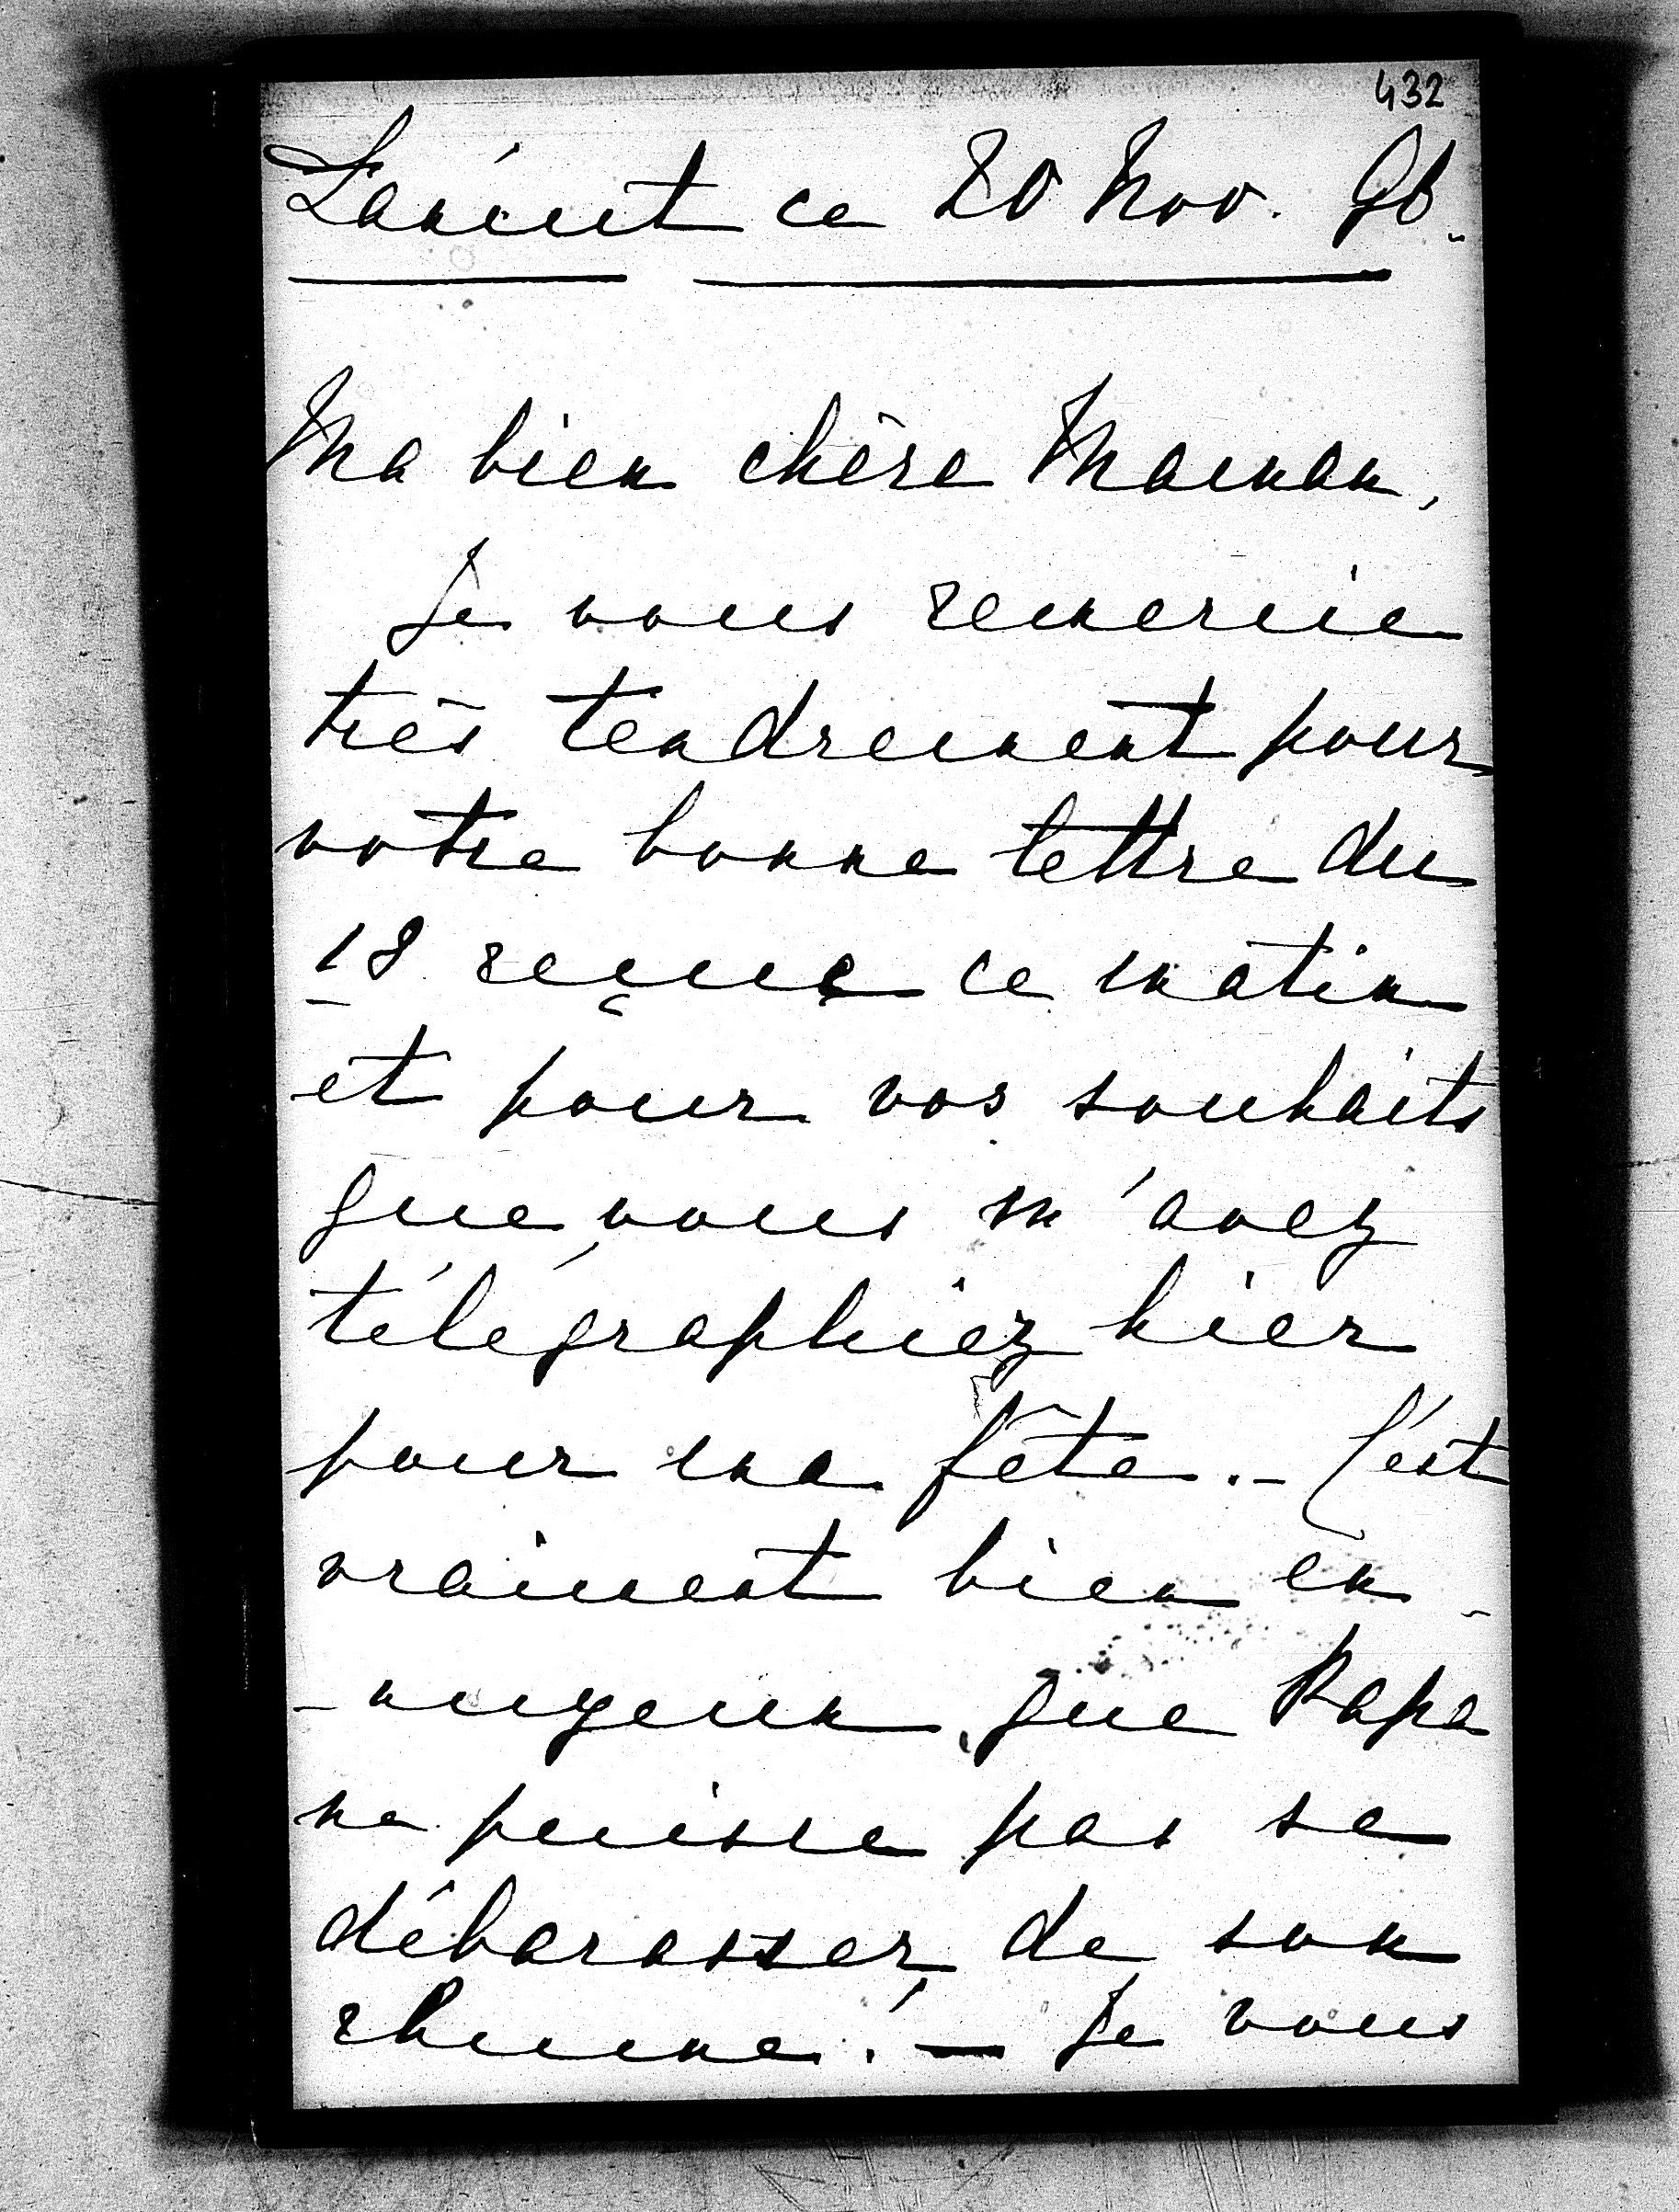 432
Laxient ce 20 Nov. 96.
Ma bien chère Maman,
Je vous remercie
très tendrement pour
votre bonne lettre du
18 reçue ce matin
et pour vos souhaits
que vous m'avez
télégraphiez hier
pour ma fête. - C'est
vraiment bien en-
-nuyeux que Papa
ne puisse pas se
débarasser de son
rhume! — Je vous